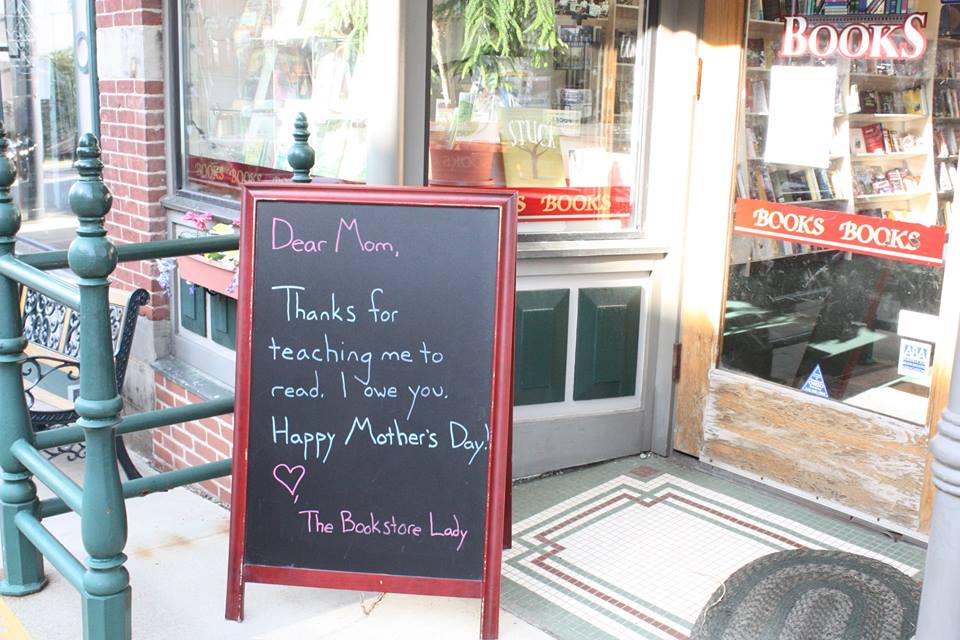 BOOKS
STUCK
BOOKS
S BOOKS
BOOKS BOOKS
ABA
Dear Mom,
Thanks for
teaching me to
read. I owe you.
Happy Mother's Day!
♡,
The Bookstore Lady